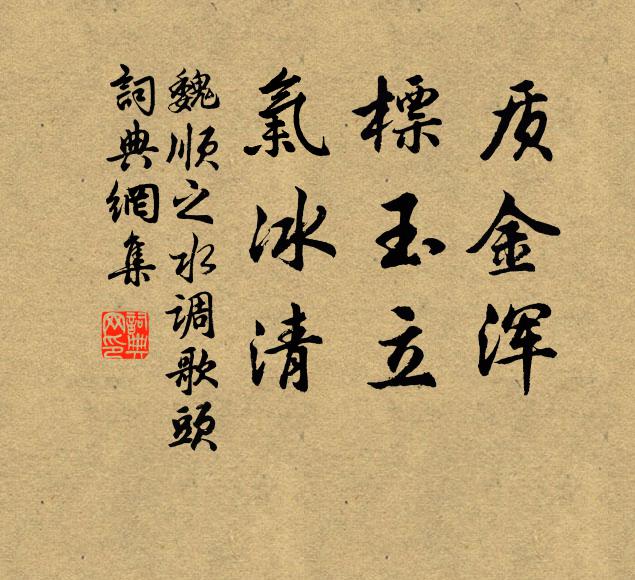 质金浑
標玉立
氣冰清
魏順之水调歌頭
詞典網集
詞典
网印